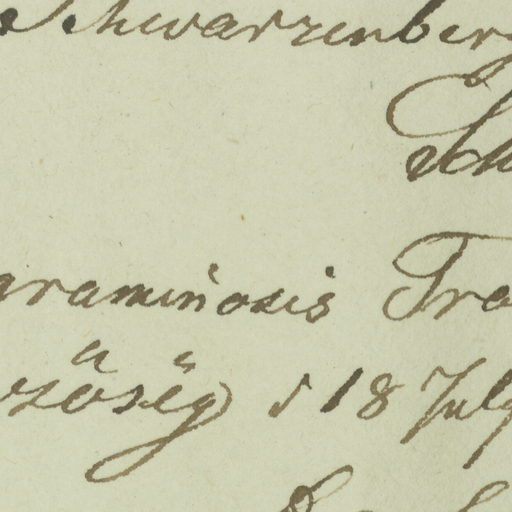 Schwarzenberg
Sch
graminosis Tra
zöség) d 18 July